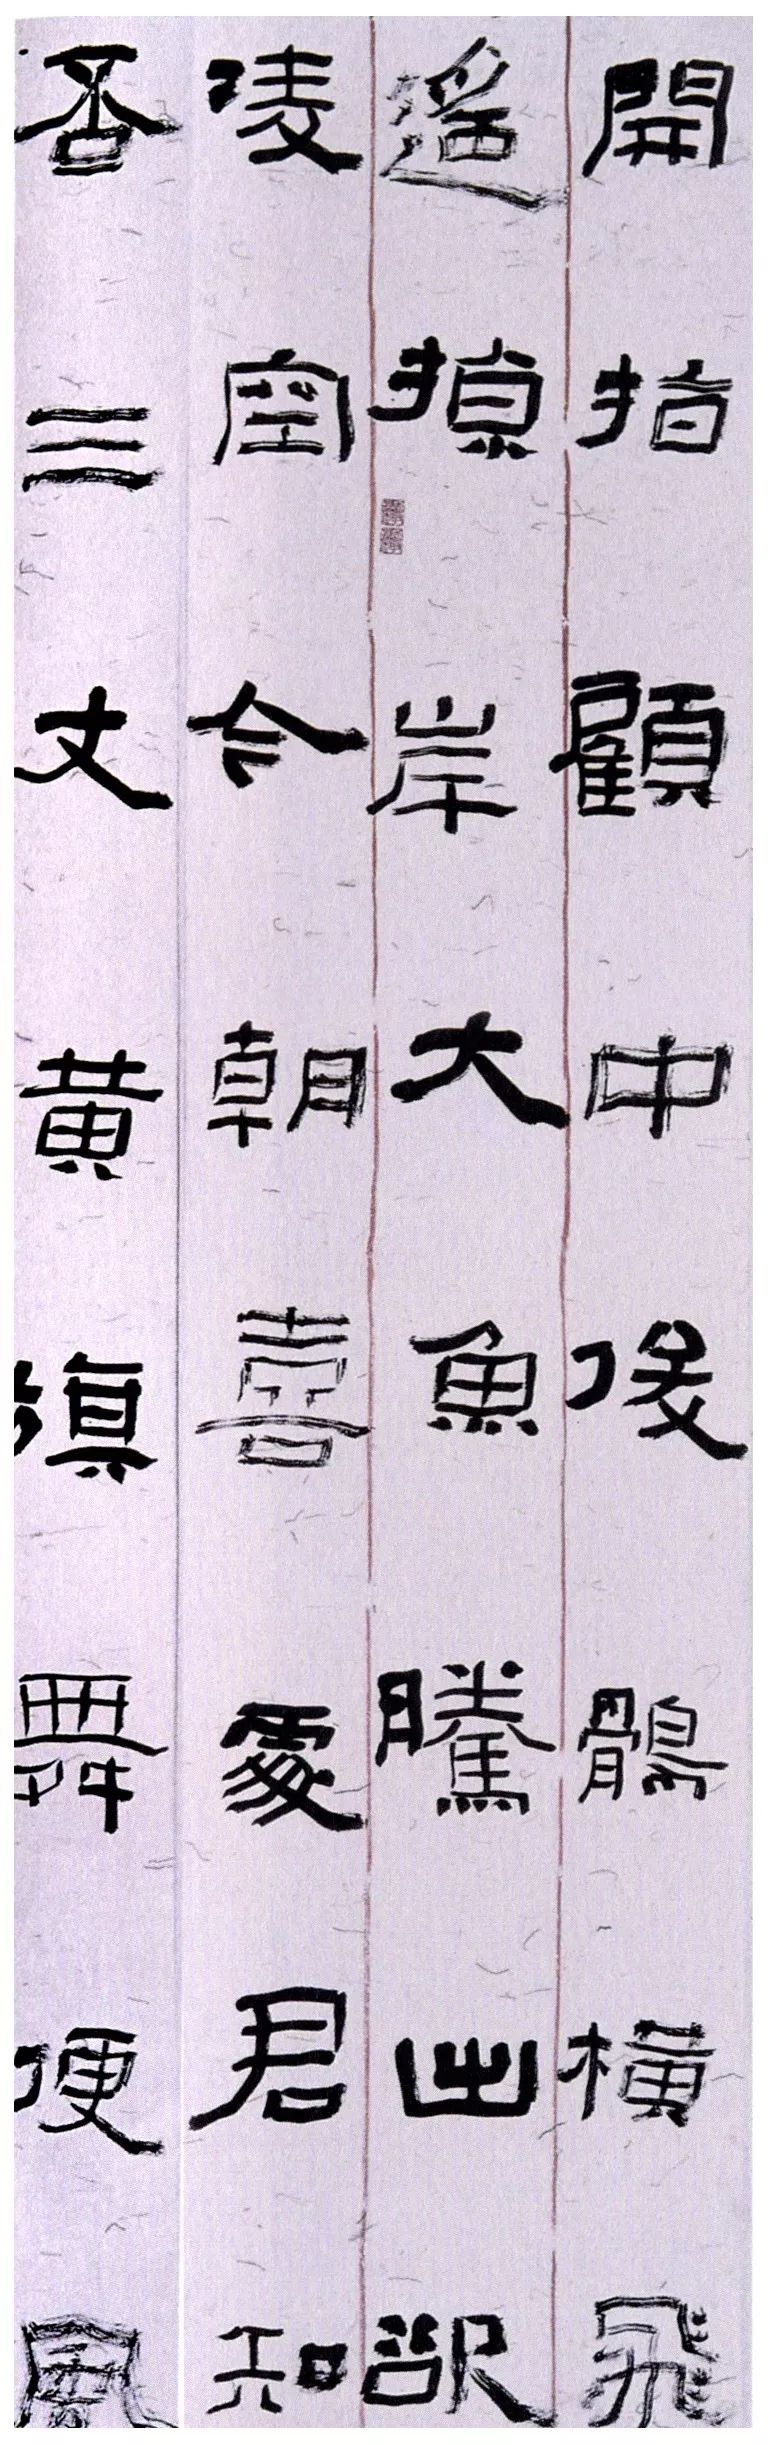 開指顧中俊鶻橫飛
遥掠岸大魚騰出欲
凌空今朝喜處君知
否三丈黃旗舞便風